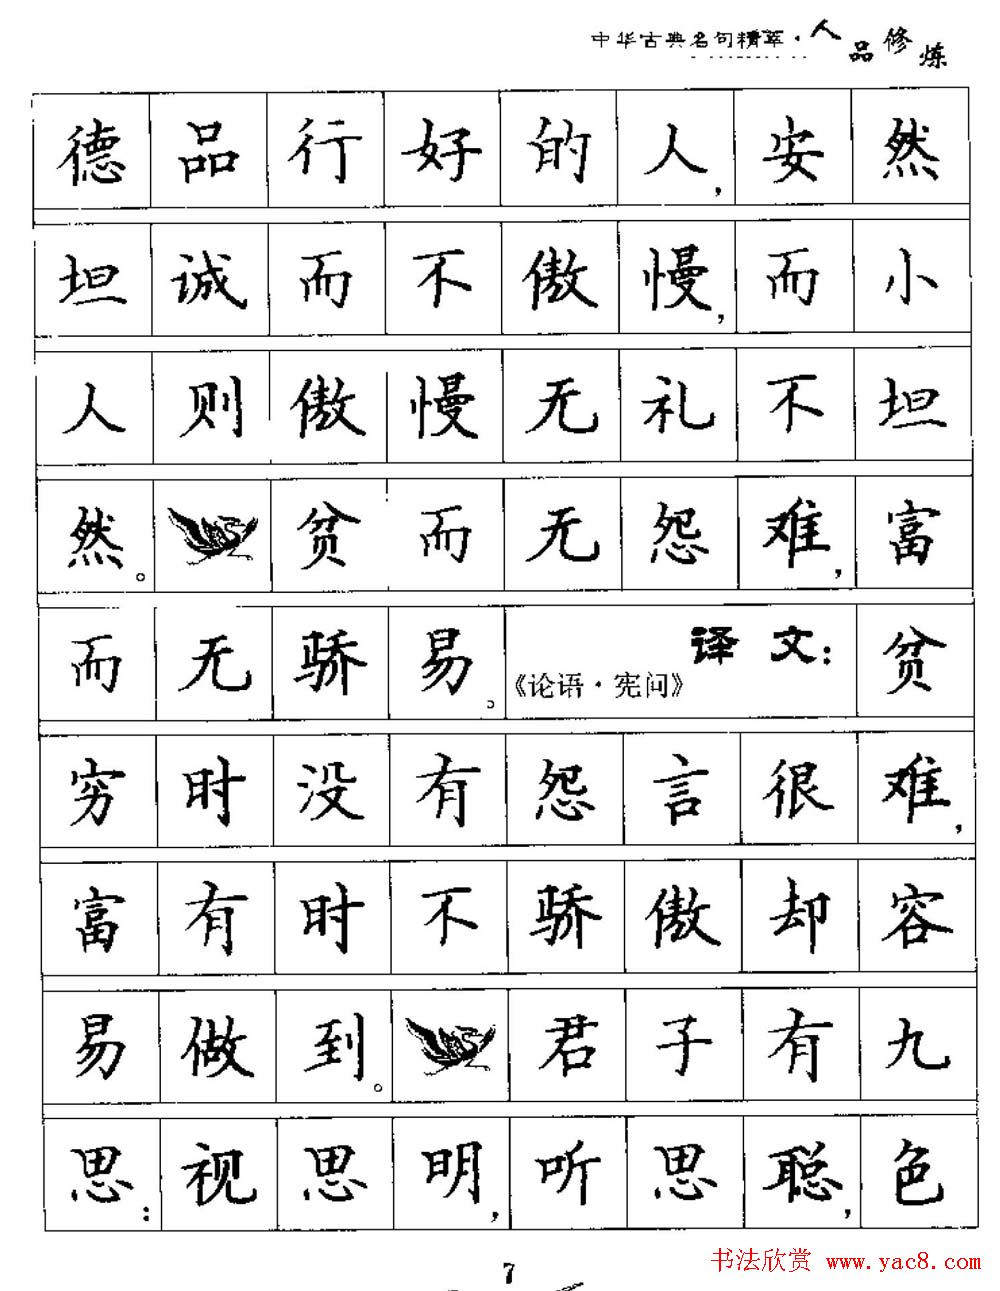 中华古典名句精萃·人品修炼
德品行好的人,安然
坦诚而不傲慢,而小
人则傲慢无礼不坦
然。贫而无怨难,富
而无骄易。《论语·宪问》译文:贫
穷时没有怨言很难,
富有时不骄傲却容
易做到。君子有九
思:视思明,听思聪,色
7
书法欣赏 www.yac8.com